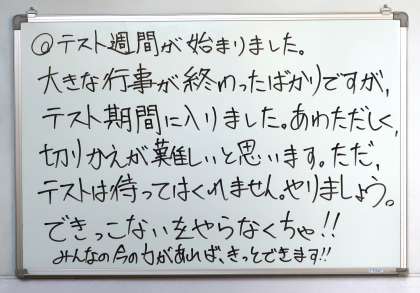 @テスト週間が始まりました。
大きな行事が終わったばかりですが,
テスト期間に入りました。あわただしく,
切りかえが難しいと思います。ただ,
テストは待ってはくれません。やりましょう。
できっこないをやらなくちゃ!!
みんなの今の力があれば、きっとできます!!